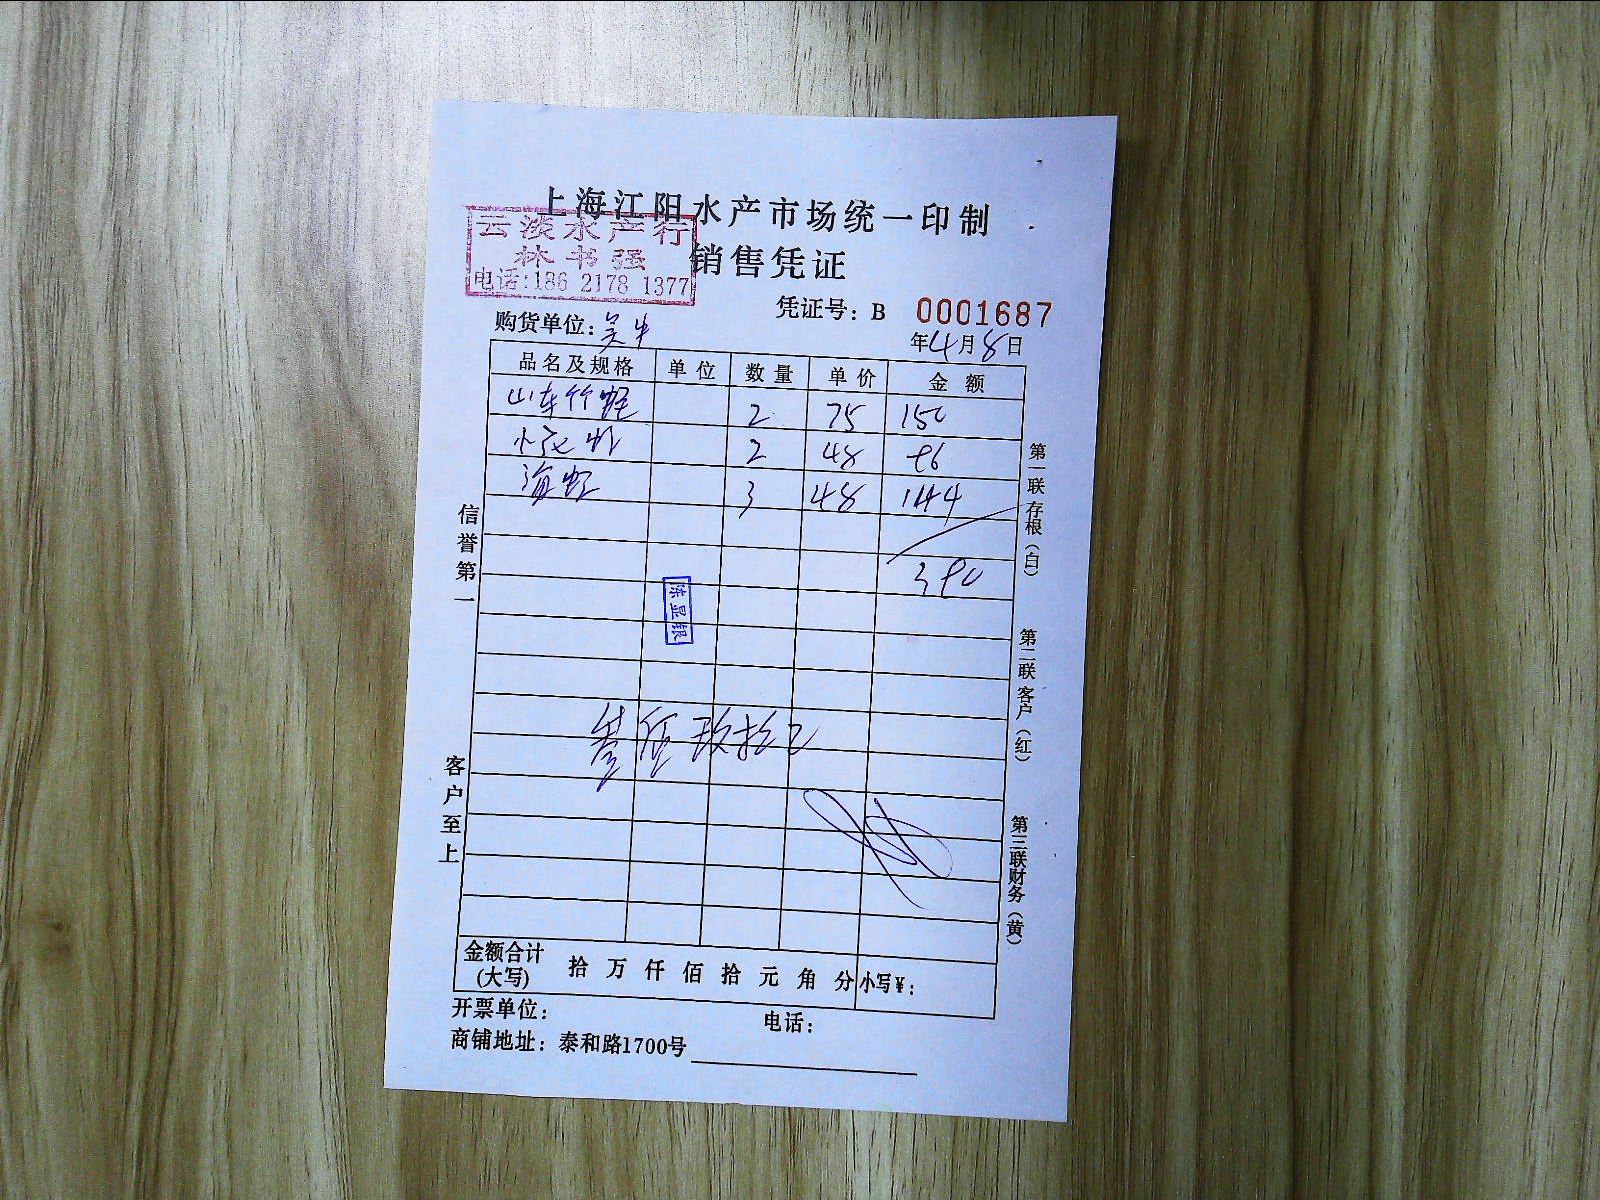 上海江阳水产市场统一印制
云淡水产行
林书强
电话:186 2178 1377
销售凭证
凭证号：B 0001687
购货单位：吴中
年4月8日
品名及规格 单位 数量 单价 金额
山东竹蛏 2 75 150
2 48 96
海虾 3 48 144
390
陈显银
叁佰玖拾元
信誉第一
客户至上
第一联存根（白）
第二联客户（红）
第三联财务（黄）
金额合计(大写) 拾 万 仟 佰 拾 元 角 分 小写¥：
开票单位： 电话：
商铺地址：泰和路1700号